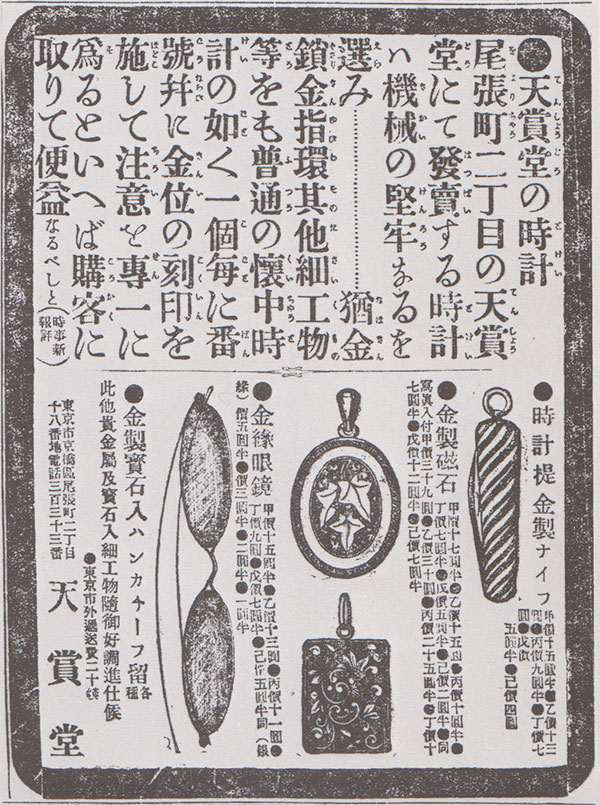 ●天賞堂の時計
尾張町二丁目の天賞
堂にて發賣する時計
ハ機械の堅牢なるを
選み…………猶金
鎖金指環其他細工物
等をも普通の懷中時
計の如く一個每に番
號幷に金位の刻印を
施して注意を專一に
爲るといへば購客に
取りて便益なるべしと(時事新報評)
●時計提金製ナイフ
甲價十五圓半●乙價十三
圓●丙價九圓●丁價七
圓●戊價
五圓半●己價四圓
●金製磁石
甲價十七圓半●乙價十五圓●丙價十圓半●
丁價七圓半●戊價五圓半●己價二圓半●同
寫眞入付甲價三十九圓●乙價三十圓●丙價二十五圓半●丁價十
七圓半●戊價十二圓半●己價七圓半
●金緣眼鏡
甲價十五圓半●乙價十三圓●丙價十一圓●
丁價九圓●戊價七圓半●己價五圓半同(銀
緣)價五圓半●價三圓半●二圓半●一圓半
●金製寶石入ハンカチーフ留各種
此他貴金屬及寶石入細工物隨御好調進仕候
●東京市外遞送費二十錢
東京市京橋區尾張町二丁目
十八番地電話三百三十三番
天賞堂